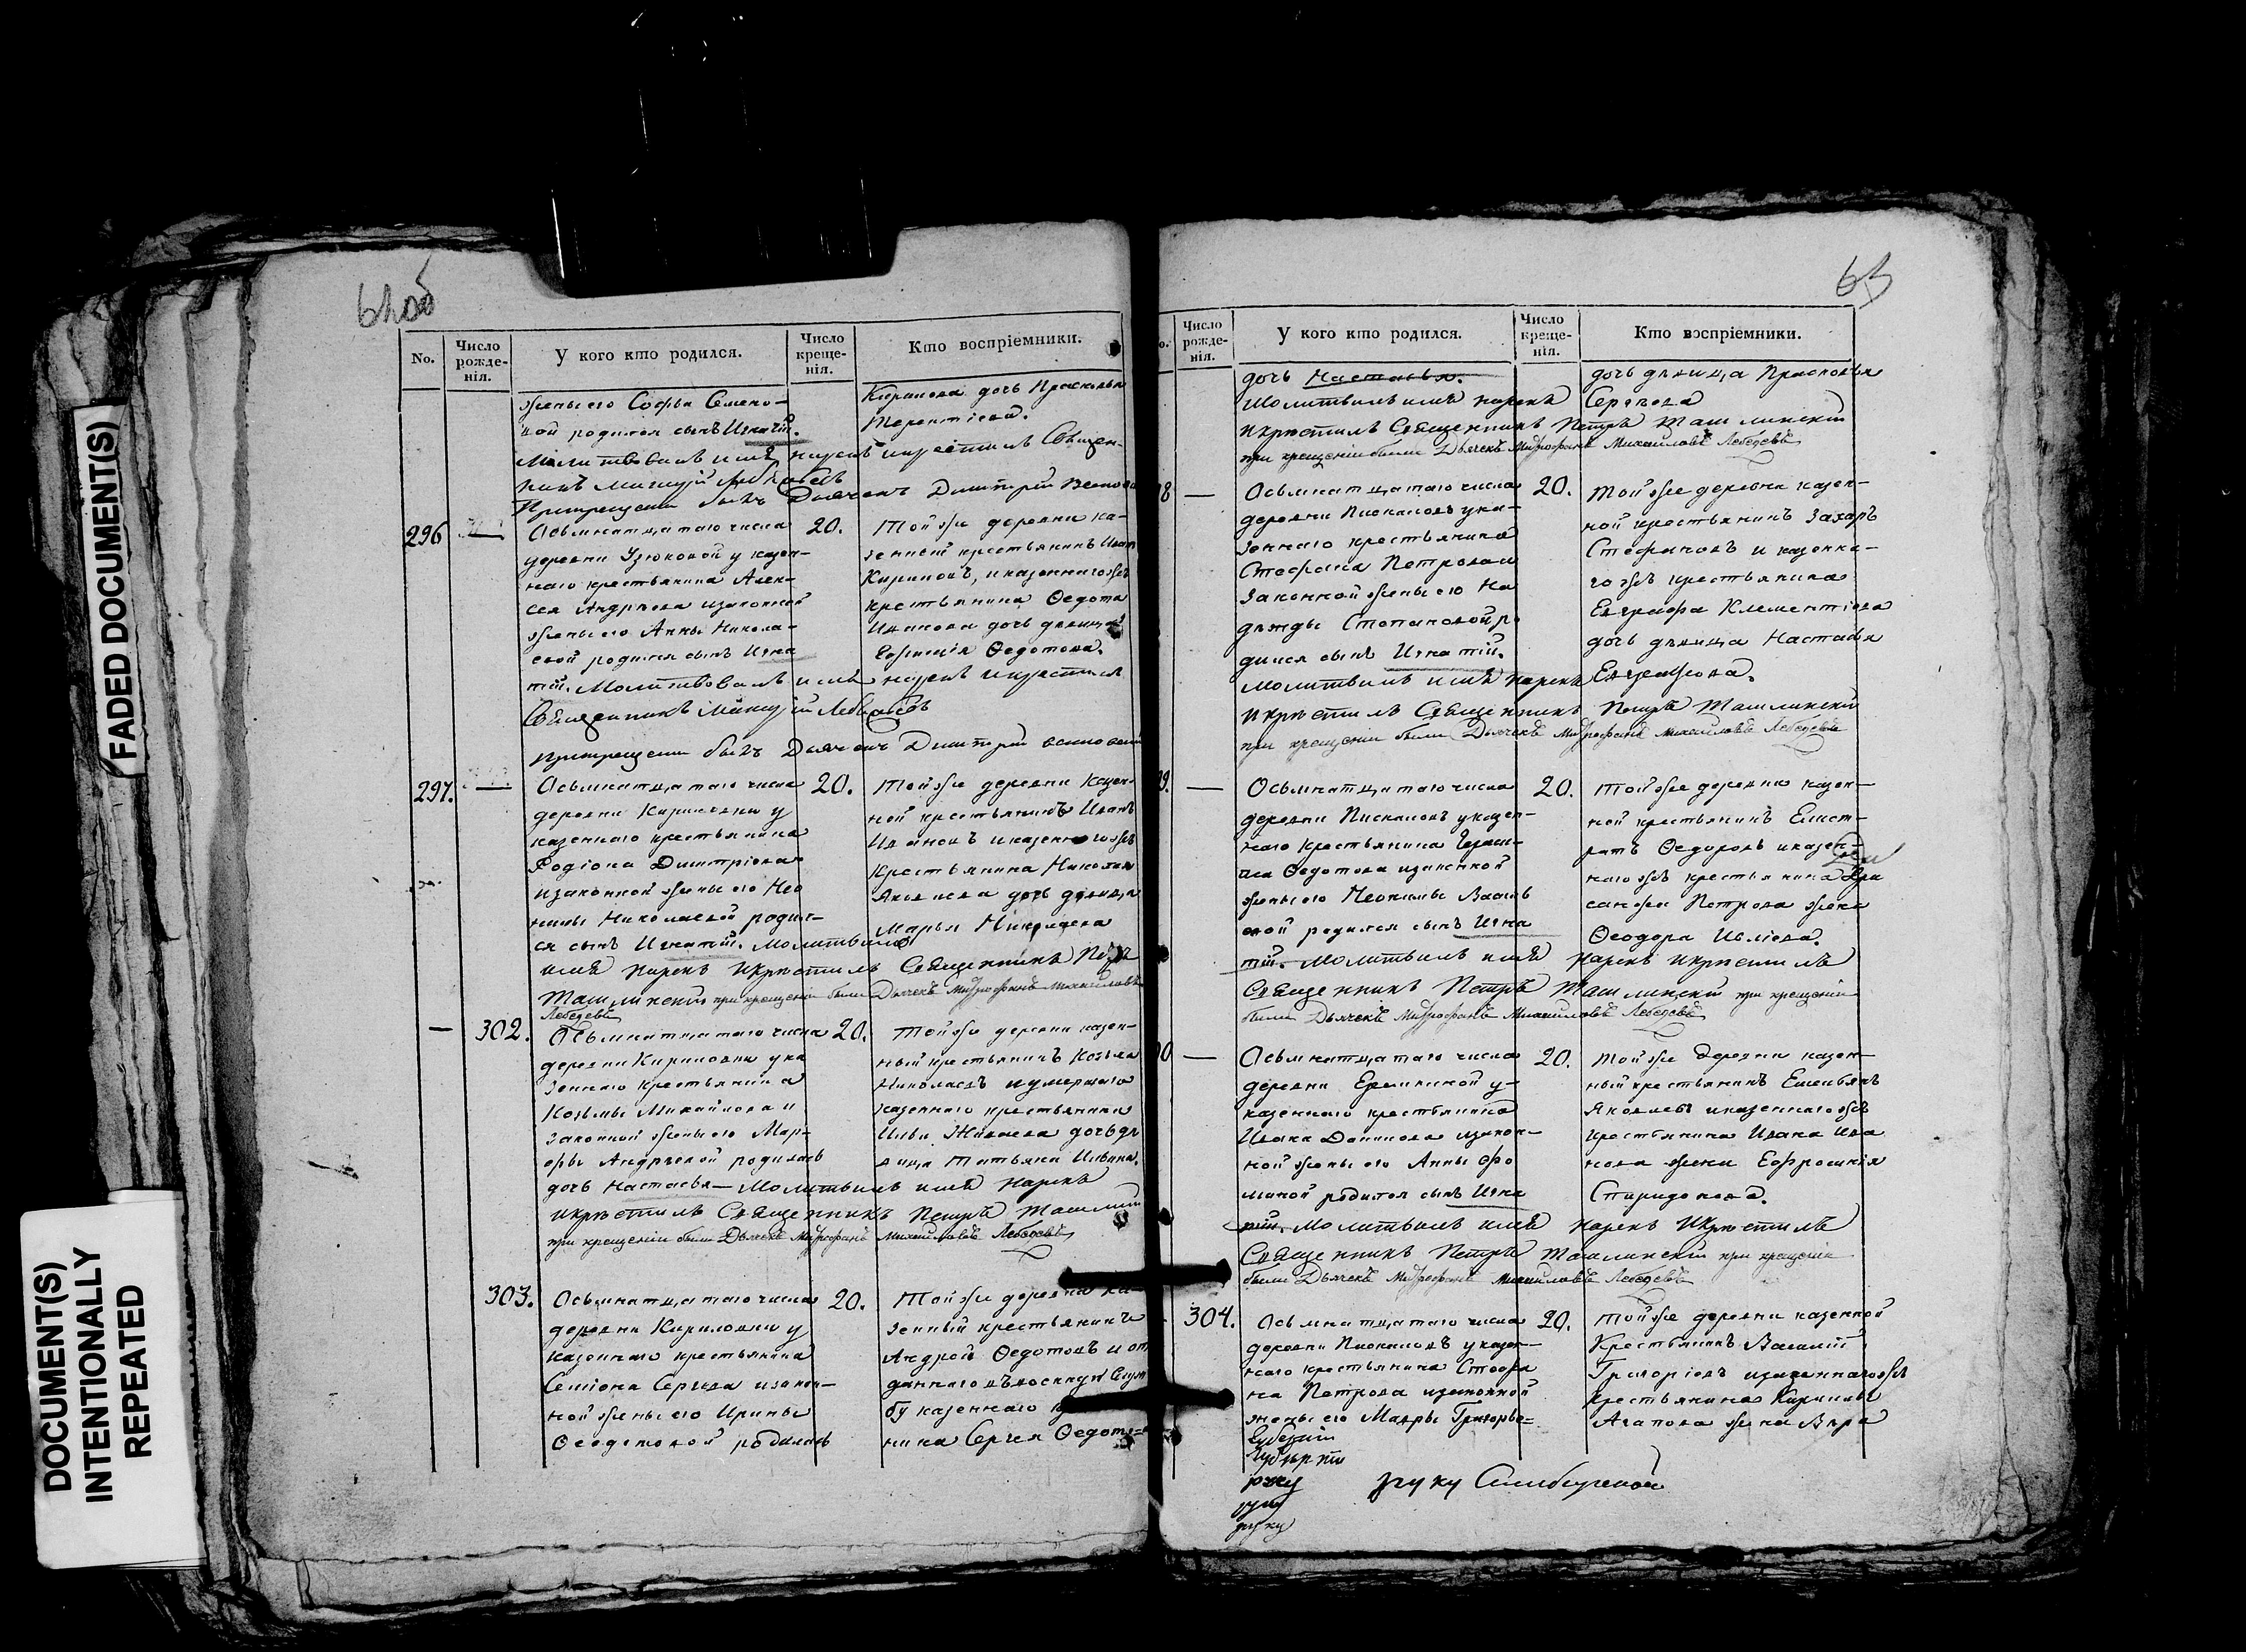 FADED DOCUMENT(S)
DOCUMENT(S)
INTENTIONALLY
REPEATED
64об
No.
Число рожде-нія.
У кого кто родился.
Число креще-нія.
Кто воспріемники.
жены его Софьи Семено-
вой родился сынъ Игнатій.
Молитвовалъ имя нарекъ и крестилъ Священ-
никъ
При крещении былъ Дьячекъ Димитрій
Кирилова дочь Прасковья
Терентіева.
296
—
Осьмнатцатаго числа
деревни Узюковой у казен-
наго крестьянина Алек-
сея Андреева и законной
жены его Анны Никола-
евой родился сынъ Игна
тій. Молитвовалъ имя нарекъ и крестилъ
Священникъ
при крещении былъ Дьячекъ Димитрій
20.
Той же деревни ка-
зенный крестьянинъ Иванъ
Кириловъ, и казеннаго жъ
крестьянина Федота
Иванова дочь девица
Федотова.
297.
—
Осьмнатцатаго числа
деревни Кириловки у
казеннаго крестьянина
Родіона Димитріева
и законной жены его Нео
нилы Николаевой родил-
ся сынъ Игнатій. Молитвилъ
имя нарекъ и крестилъ Священникъ Петръ
Ташлинскій при крещеніи были Дьячекъ Митрофанъ Михайловъ
Лебедевъ
20.
Той же деревни казен-
ной крестьянинъ Иванъ
Ивановъ и казеннаго жъ
крестьянина Николая
Яковлева дочь девица
Марья Николаева
—
302.
Осьмнатцатаго числа
деревни Кириловки у ка
зеннаго крестьянина
Козьмы Михайлова и
законной жены его Мар-
фы Андреевой родилась
дочь Настасья — Молитвилъ имя нарекъ
и крестилъ Священникъ Петръ Ташлин
при крещеніи были Дьячекъ Митрофанъ Михайловъ Лебедевъ
20.
Той же деревни казен-
ный крестьянинъ Козьма
Николаевъ и умершаго
казеннаго крестьянина
дочь де
вица Татьяна
303.
Осьмнатцатаго числа
деревни Кириловки у
казеннаго крестьянина
Семіона Сергеева и закон-
ной жены его Ирины
Феодотовой родилась
20.
Той же деревни ка-
зенный крестьянинъ
Андрей Федотовъ и от
даннаго въ воинскую службу
казеннаго
ника Сергея Федото
63
Число рожде-нія.
У кого кто родился.
Число креще-нія.
Кто воспріемники.
дочь Настасья.
Молитвилъ имя нарекъ
и крестилъ Священникъ Петръ Ташлинскій
при крещеніи были Дьячекъ Митрофанъ Михайловъ Лебедевъ
дочь девица Прасковья
Сергеева
8
—
Осьмнатцатаго числа
деревни Пискаловъ у ка-
зеннаго крестьянина
Стефана Петрова и
законной жены его На
дежды Степановой ро
дился сынъ Игнатій.
Молитвилъ имя нарекъ
и крестилъ Священникъ Петръ Ташлинскій
при крещеніи были Дьячекъ Митрофанъ Михайловъ Лебедевъ
20.
Той же деревни казен-
ной крестьянинъ Захаръ
Стефановъ и казенна-
го жъ крестьянина
Евграфа Клементіева
дочь девица Настасья
Евграфова.
9.
—
Осьмнатцатаго числа
деревни Пискаловъ у казен-
наго крестьянина Гераси-
ма Федотова и законной
жены его Неонилы Василь
евой родился сынъ Игна
тій. Молитвилъ имя нарекъ и крестилъ
Священникъ Петръ Ташлинскій при крещеніи
были Дьячекъ Митрофанъ Михайловъ Лебедевъ
20.
Той же деревни казен-
ной крестьянинъ Елист-
ратъ Федоровъ и казен-
наго жъ крестьянина
Петрова жена
Феодора
0
—
Осьмнатцатаго числа
деревни Еремкиной у
казеннаго крестьянина
Ивана Данилова и закон-
ной жены его Анны Фо
миной родился сынъ Игна
тій. Молитвилъ имя нарекъ и крестилъ
Священникъ Петръ Ташлинскій при крещеніи
были Дьячекъ Митрофанъ Михайловъ Лебедевъ
20.
Той же деревни казен-
ный крестьянинъ Емельянъ
Яковлевъ и казеннаго жъ
крестьянина Ивана Ива
нова жена Ефросинія
Спиридонова.
304.
Осьмнатцатаго числа
деревни Пискаловъ у казен-
наго крестьянина Стефа
на Петрова и законной
жены его Мавры Григорье=
20.
Той же деревни казенной
Крестьянинъ Василій
Григоріевъ и казеннаго жъ
крестьянина Кирилы
Агапова жена Вера
руку
руку Симбирской